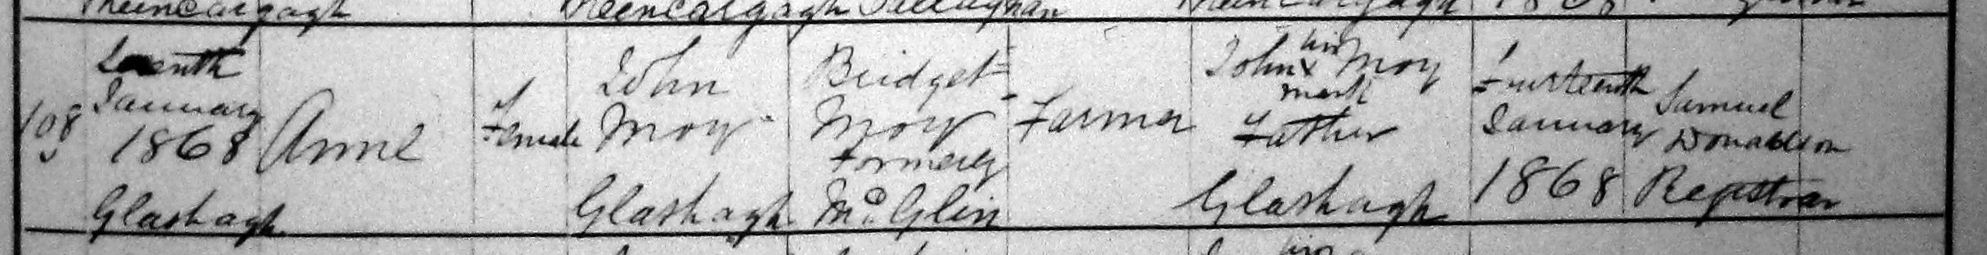 108
Seventh
January
1868
Glashagh
Anne
Female
John
Moy
Glashagh
Bridget
Moy
Formerly
McGlin
Farmer
John his x mark Moy
Father
Glashagh
Fourteenth
January
1868
Samuel
Donaldson
Registrar